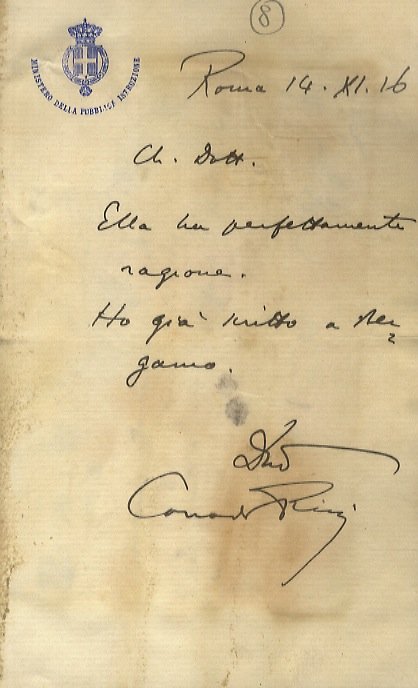 8
MINISTERO DELLA PUBBLICA ISTRUZIONE
Roma 14. XI. 16
Ch. Dott.
Ella ha perfettamente
ragione.
Ho già scritto a Ber
gamo.
Corrado Ricci